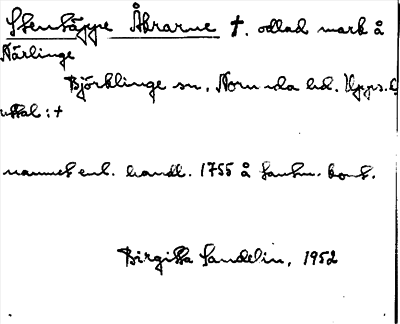 Stentäppe Åkrarne †. odlad mark å
Närlinge
Björklinge sn, Norunda hd. Upps. l
uttal: †
namnet enl. handl. 1755 å lantm. kont.
Birgitta Sandelin, 1952